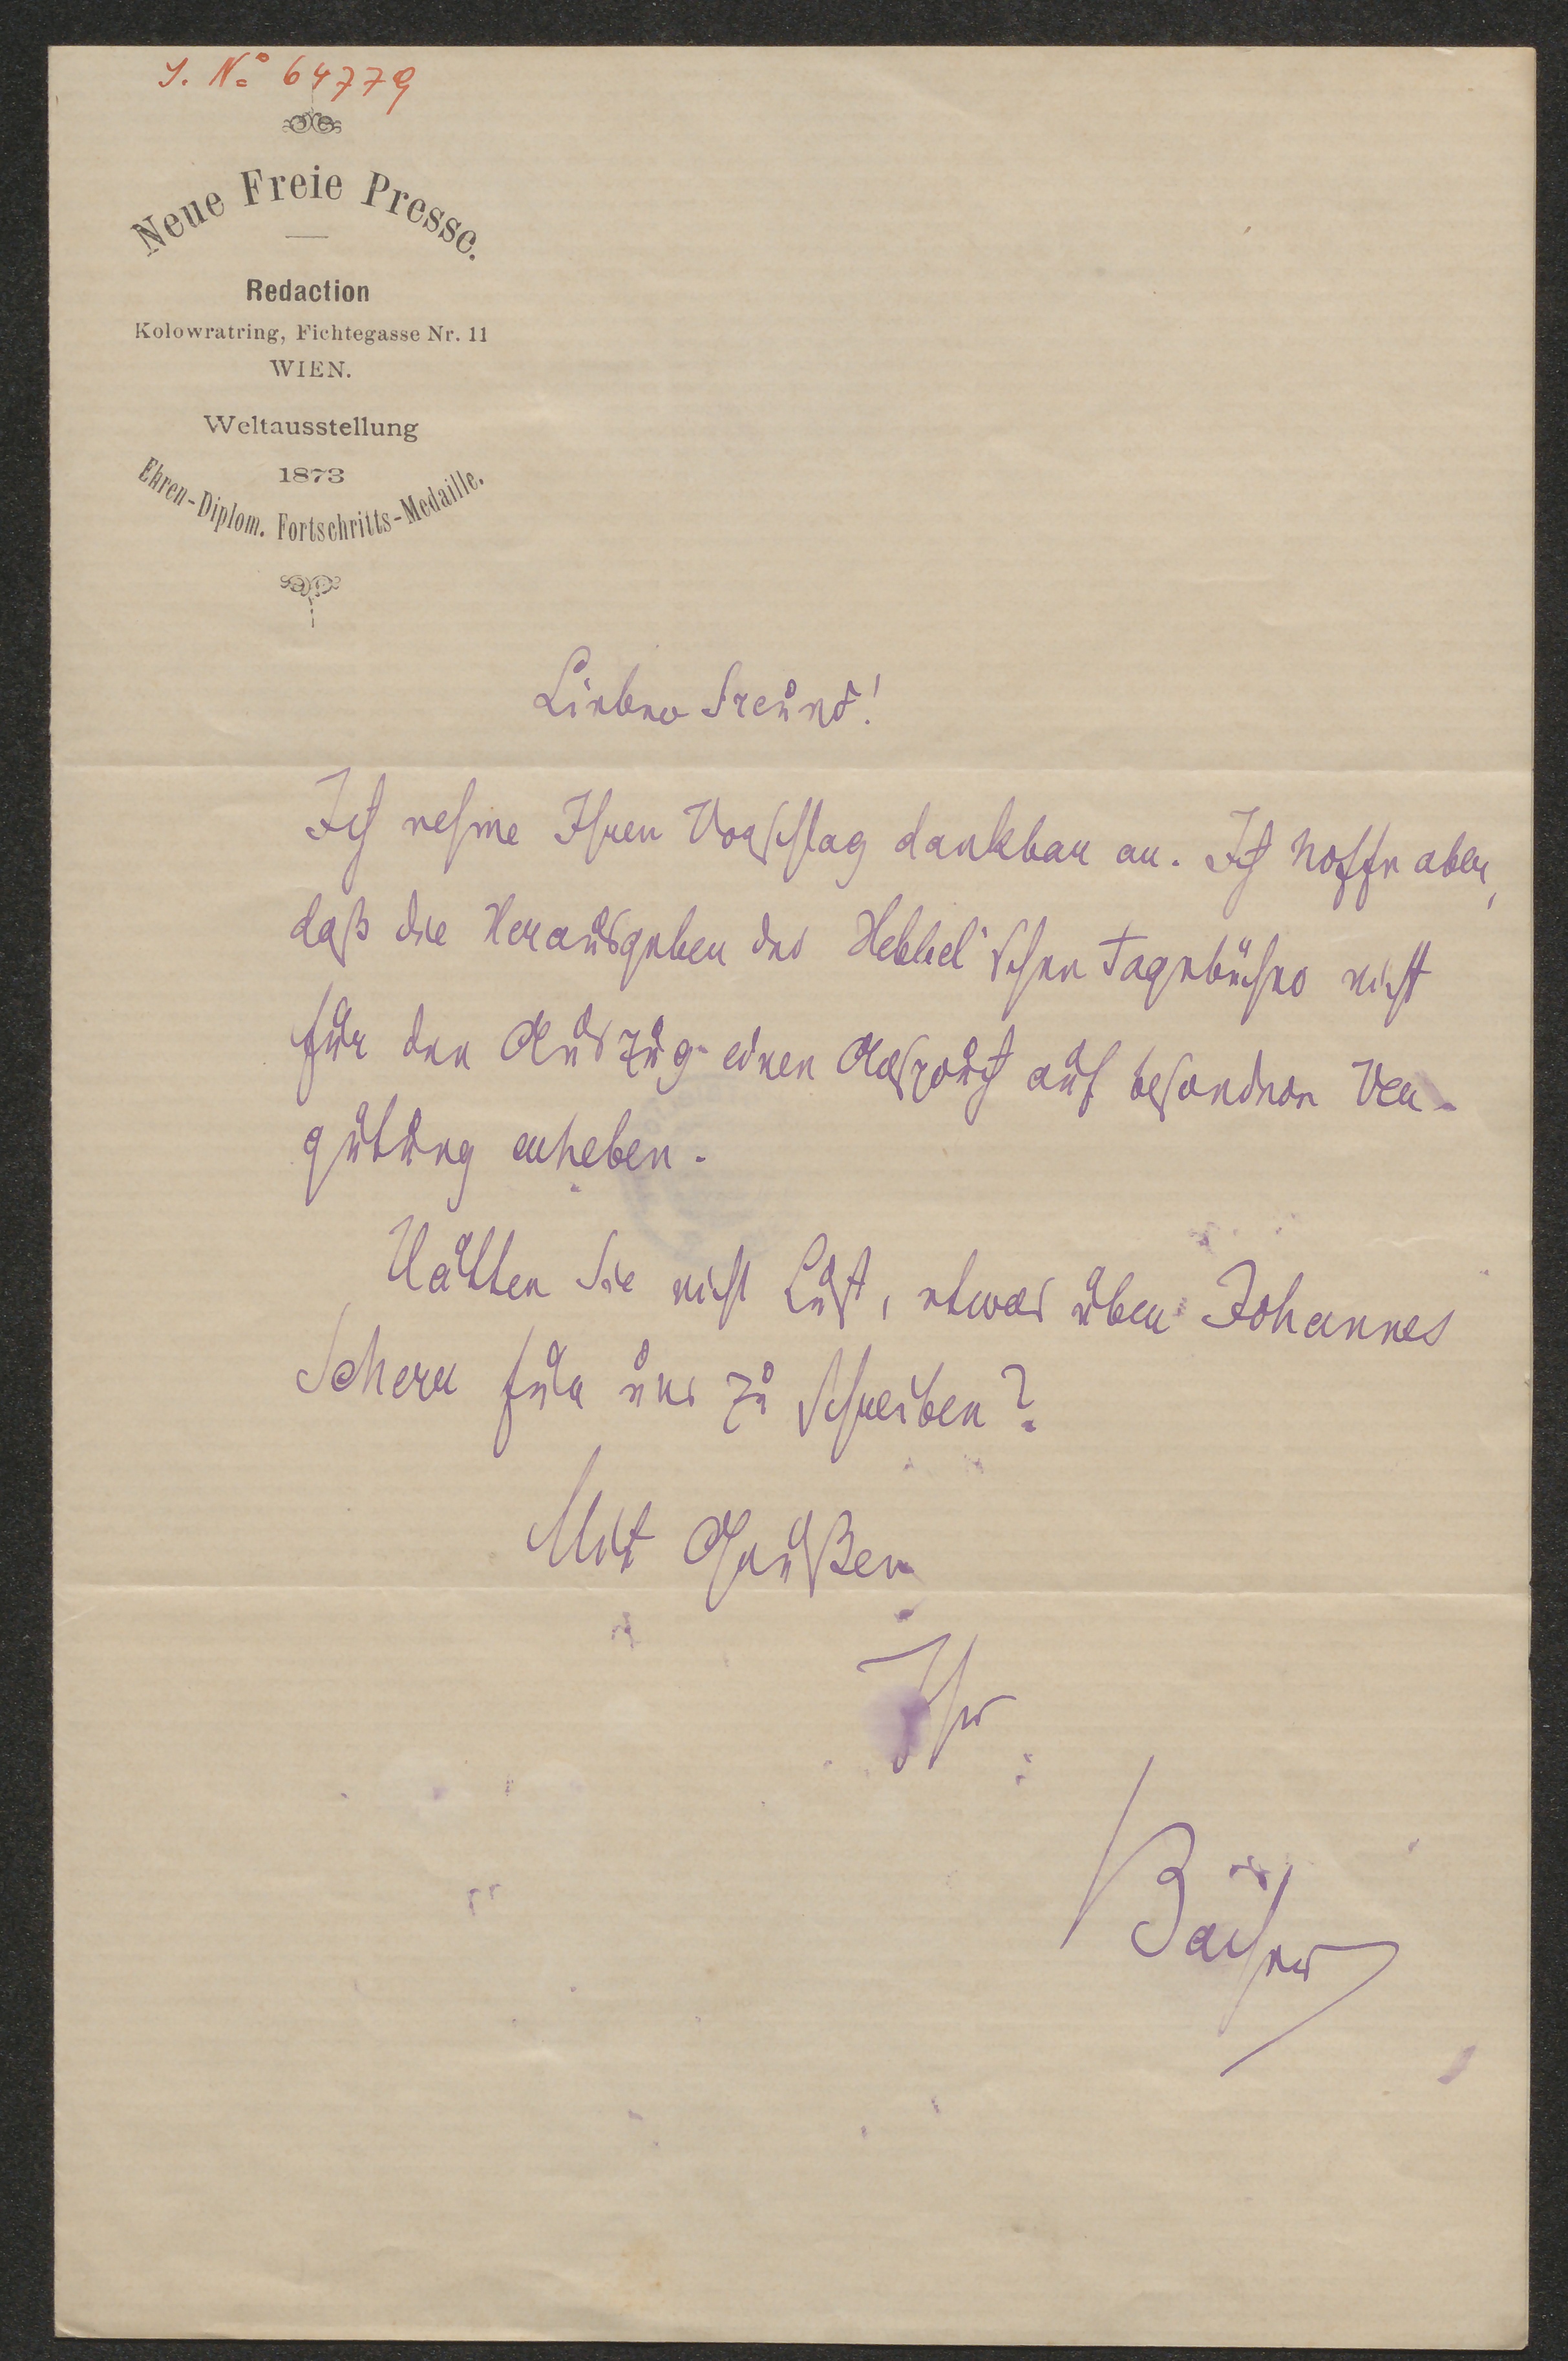 J. No 64779
Neue Freie Presse.
Redaction
Kolowratring, Fichtegasse Nr. 11
WIEN.
Weltausstellung
1873
Ehren-Diplom. Fortschritts-Medaille.
Lieber Freund!
Ich nehme Ihren Vorschlag dankbar an. Ich hoffe aber,
daß die Herausgeber der Hebbel'schen Tagebücher nicht
für den Auszug einen Anspruch auf besondere Ver-
gütung erheben.
Hätten Sie nicht Lust, etwas über Johannes
Scherr für uns zu schreiben?
Mit Grüßen
Ihr
Bacher